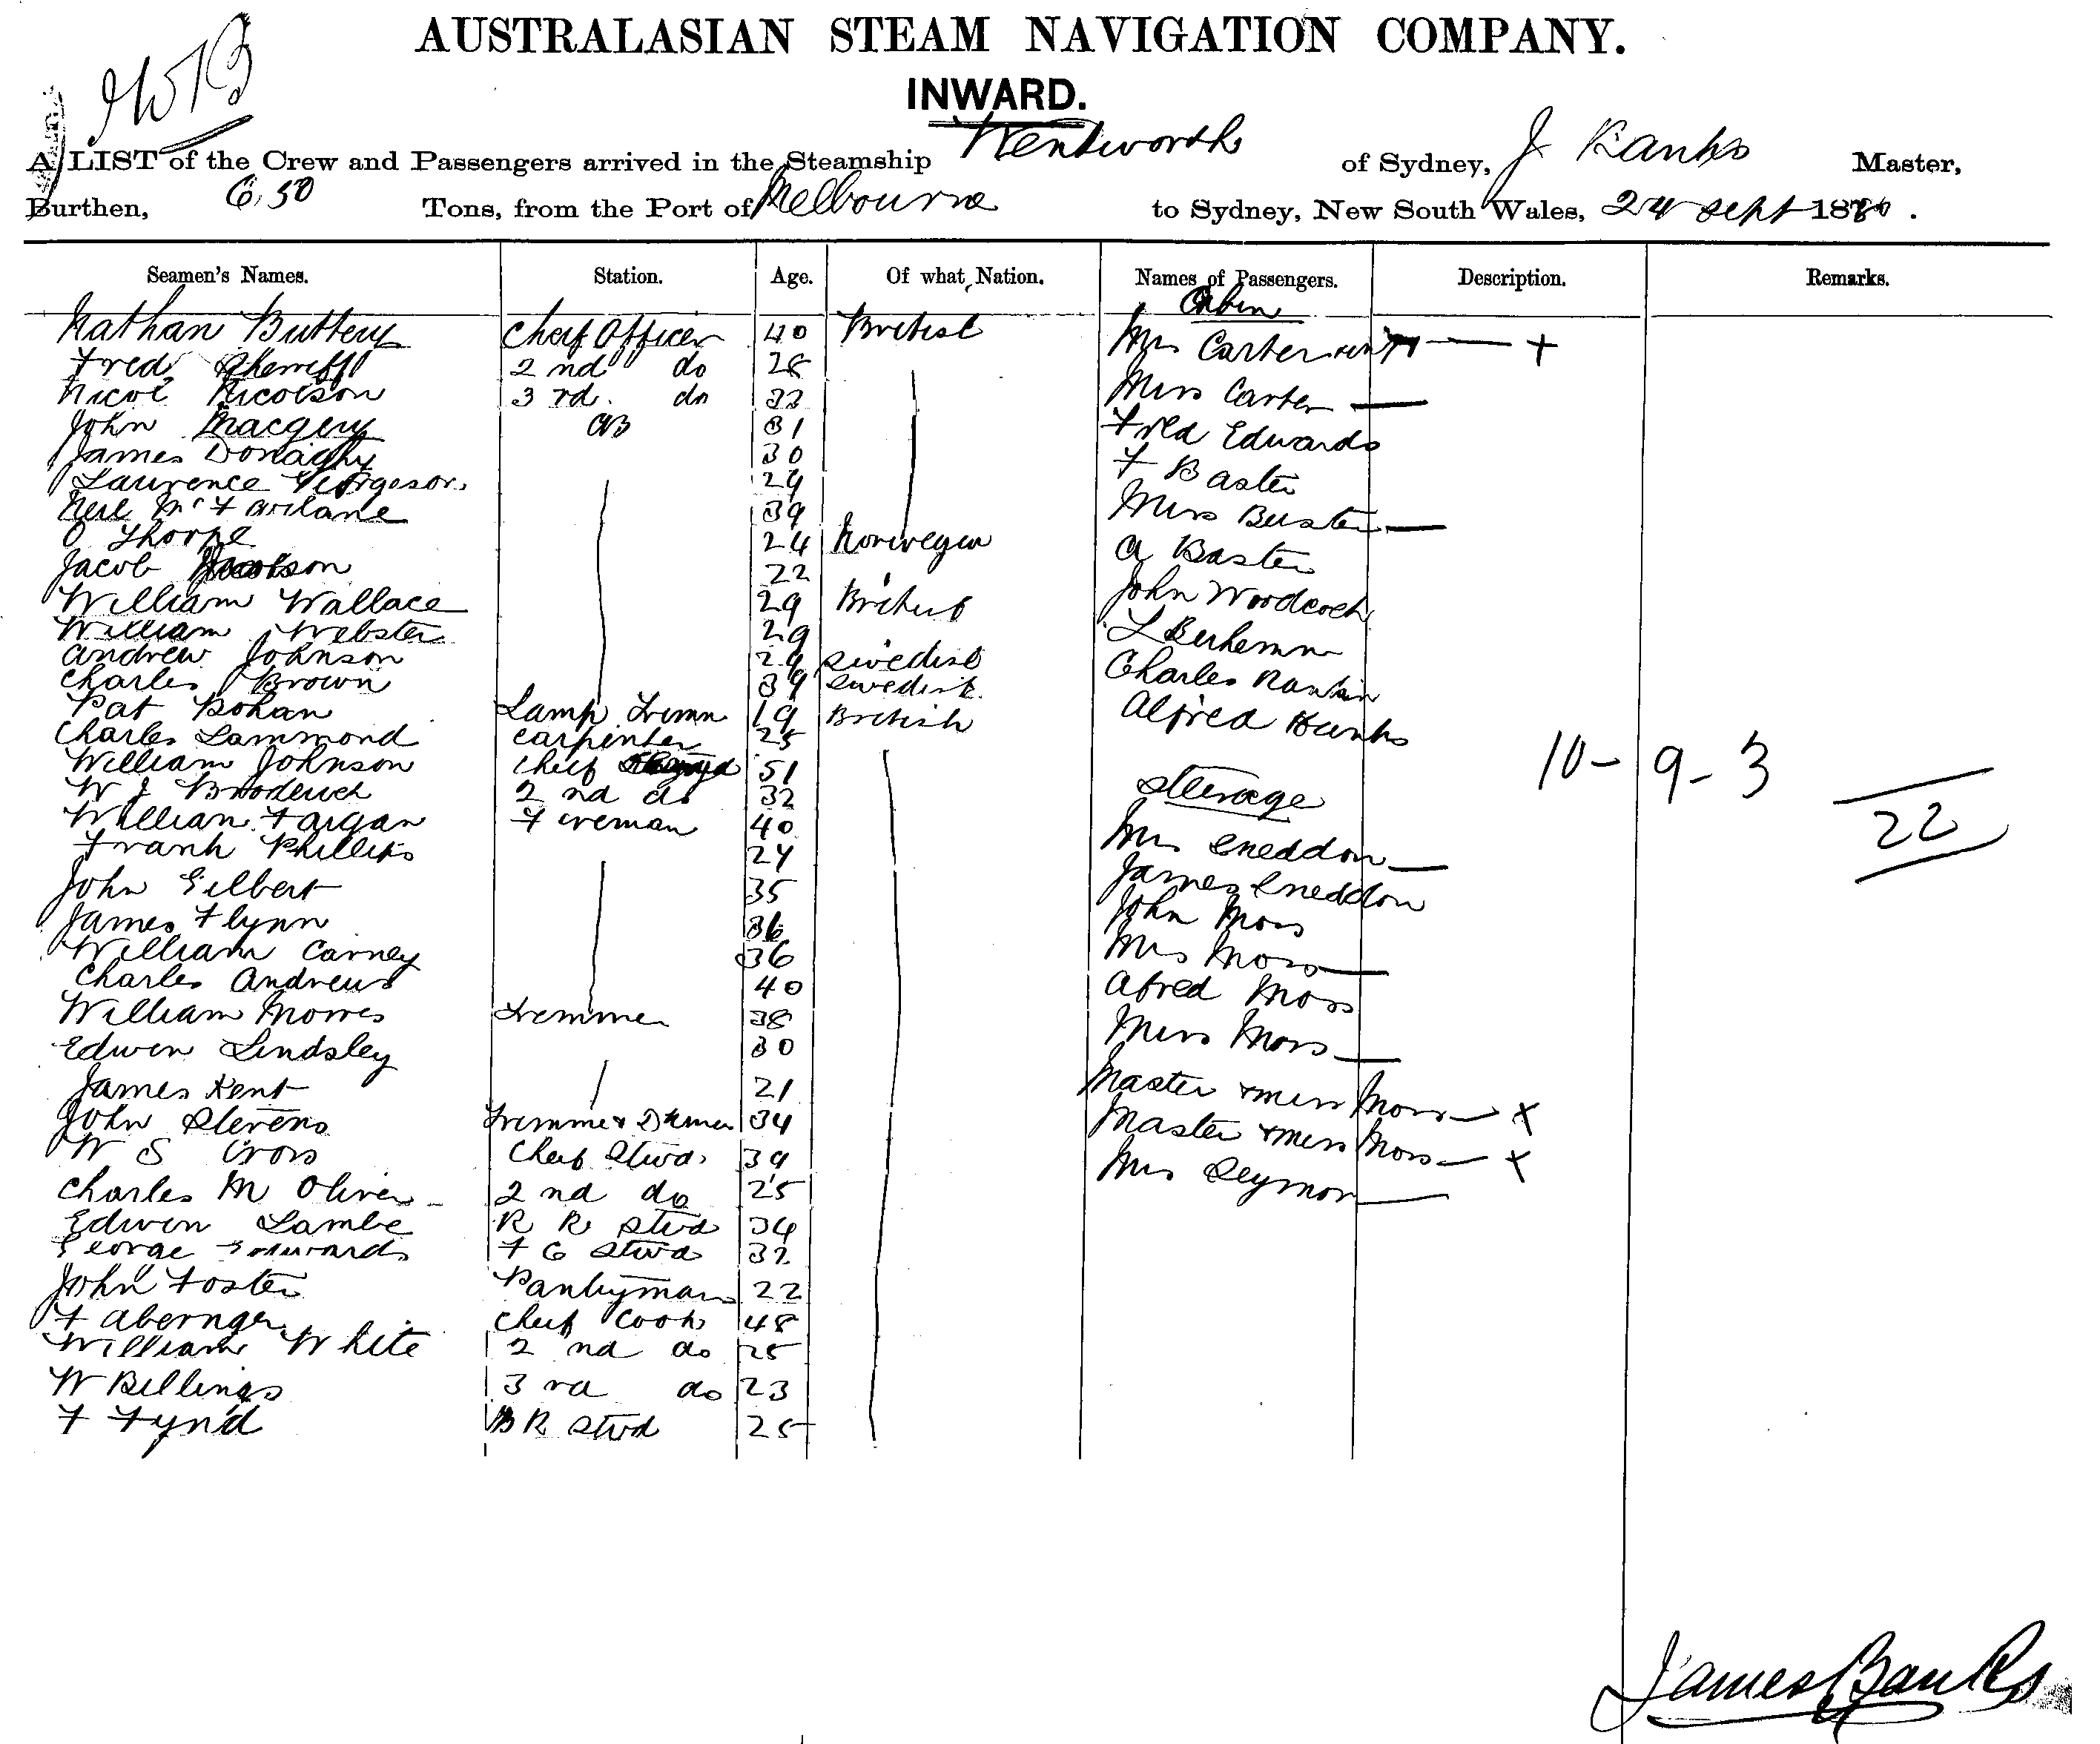 AUSTRALASIAN STEAM NAVIGATION COMPANY.
INWARD.
A LIST of the Crew and Passengers arrived in the Steamship Wentworth of Sydney, J Banks Master,
Burthen, 650 Tons, from the Port of Melbourne to Sydney, New South Wales, 24 Sept 1880.
Seamen's Names. Station. Age. Of what Nation. Names of Passengers. Description. Remarks.
Cabin
Nathan Buttery Cheif Officer 40 British Mrs Carter +
Fred Sherriff 2nd do 28
Nicol Nicolson 3rd do 32 Miss Carter
John Macgery AB 31 Fred Edwards
James Donaghy 30 F Baster
Laurence 29
Neil McFarlane 39 Miss Baster
O Thorpe 24 Norwegen A Baster
Jacob 22 John Woodcock
William Wallace 29 British L
William Webster 29
Andrew Johnson 29 Swedish Charles Rankin
Charles Brown 39 Swedish
Pat Bohan Lamp Trimr 19 British Alfred Banks
Charles Lammond Carpenter 25
William Johnson Cheif 51 10 - 9 - 3
W J Broderick 2nd do 32 Steerage 22
William Fargan Fireman 40
Frank Phillips 24 Mrs Sneddon
John Gilbert 35 James Sneddon
James Flynn 36 John Moss
William Carney 36 Mrs Moss
Charles Andrews 40 Alfred Moss
William Morres Trimmer 38 Miss Moss
Edwin Lindsley 30
James Kent 21 Master & Miss Moss x
John Stevens Trimmer & 34 Master & Miss Moss x
W S Cross Cheif Stwd 39 Mrs Seymor
Charles M Oliver 2nd do 25
Edwin Lambe R R Stwd 34
George Edwards F C Stwd 32
John Foster Pantryman 22
F Cheif Cook 48
William White 2nd do 25
W Billings 3rd do 23
F Fynd B R Stwd 25
James Banks